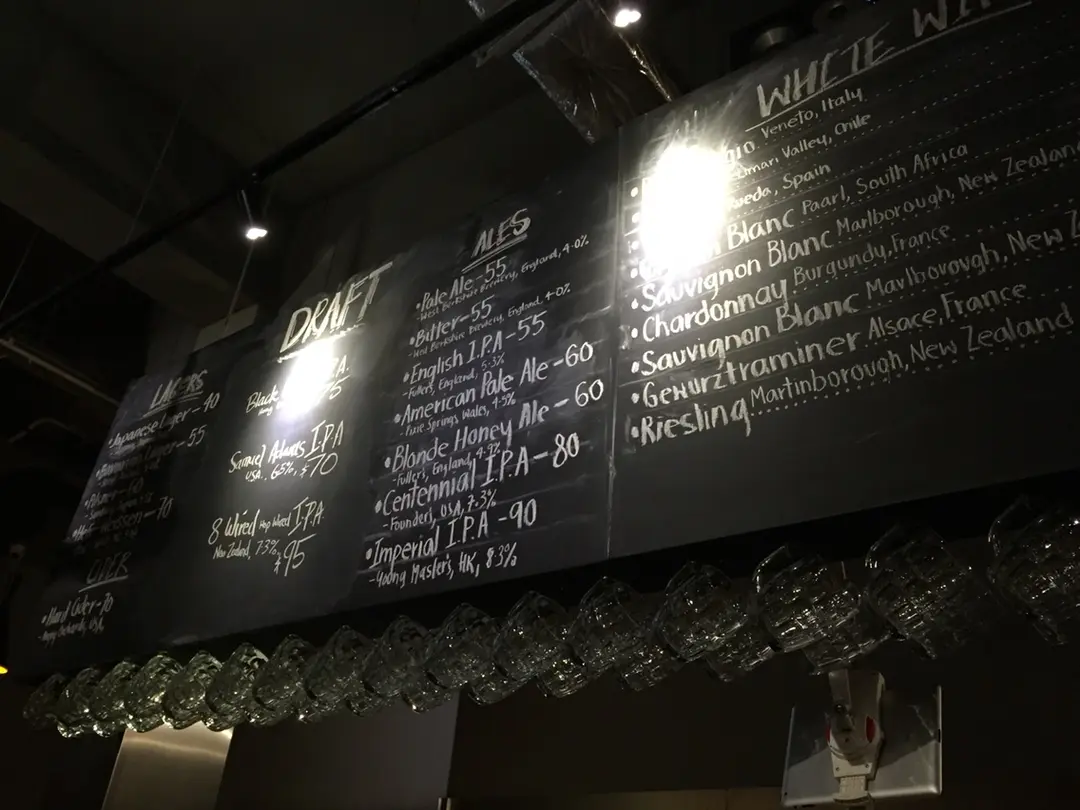 LAGERS
•Japanese Lager - 40
- 55
- 70
CIDER
•Hard Cider - 70
DRAFT
Black I.P.A.
Samuel Adams I.P.A
USA, 6.5%, $70
8 Wired Hop Wired I.P.A
New Zealand, 7.3%, $95
ALES
•Pale Ale - 55
-West Berkshire Brewery, England, 4.0%
•Bitter - 55
-West Berkshire Brewery, England, 4.0%
•English I.P.A - 55
-Fullers, England, 5.3%
•American Pale Ale - 60
-Pixie Springs, Wales, 4.5%
•Blonde Honey Ale - 60
-Fuller's, England, 4.9%
•Centennial I.P.A - 80
-Founders, USA, 7.3%
•Imperial I.P.A - 90
-Young Master's, HK, 8.3%
WHITE
Veneto, Italy
Limari Valley, Chile
Rueda, Spain
Blanc Paarl, South Africa
•Sauvignon Blanc Marlborough, New Zealand
•Chardonnay Burgundy, France
•Sauvignon Blanc Marlborough, New
•Gewurztraminer Alsace, France
•Riesling Martinborough, New Zealand